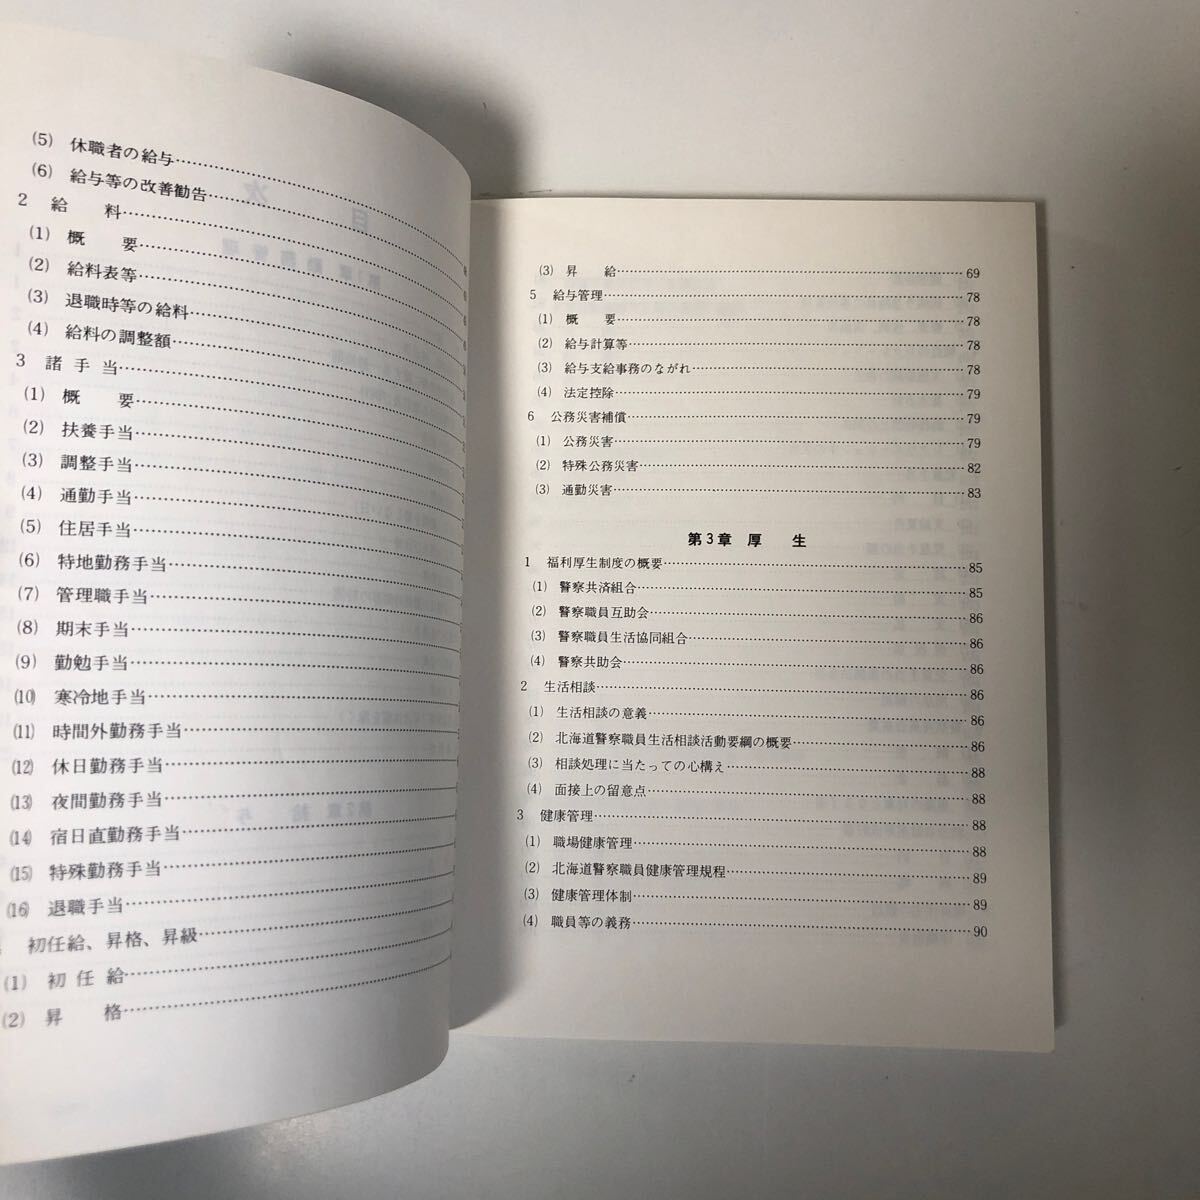 (5) 休職者の給与
(6) 給与等の改善勧告
2 給 料
(1) 概 要
(2) 給料表等
(3) 退職時等の給料
(4) 給料の調整額
3 諸手当
(1) 概 要
(2) 扶養手当
(3) 調整手当
(4) 通勤手当
(5) 住居手当
(6) 特地勤務手当
(7) 管理職手当
(8) 期末手当
(9) 勤勉手当
(10) 寒冷地手当
(11) 時間外勤務手当
(12) 休日勤務手当
(13) 夜間勤務手当
(14) 宿日直勤務手当
(15) 特殊勤務手当
(16) 退職手当
初任給、昇格、昇級
(1) 初任給
(2) 昇 格
(3) 昇 給 69
5 給与管理 78
(1) 概 要 78
(2) 給与計算等 78
(3) 給与支給事務のながれ 78
(4) 法定控除 79
6 公務災害補償 79
(1) 公務災害 79
(2) 特殊公務災害 82
(3) 通勤災害 83
第3章 厚 生
1 福利厚生制度の概要 85
(1) 警察共済組合 85
(2) 警察職員互助会 86
(3) 警察職員生活協同組合 86
(4) 警察共助会 86
2 生活相談 86
(1) 生活相談の意義 86
(2) 北海道警察職員生活相談活動要綱の概要 86
(3) 相談処理に当たっての心構え 88
(4) 面接上の留意点 88
3 健康管理 88
(1) 職場健康管理 88
(2) 北海道警察職員健康管理規程 89
(3) 健康管理体制 89
(4) 職員等の義務 90